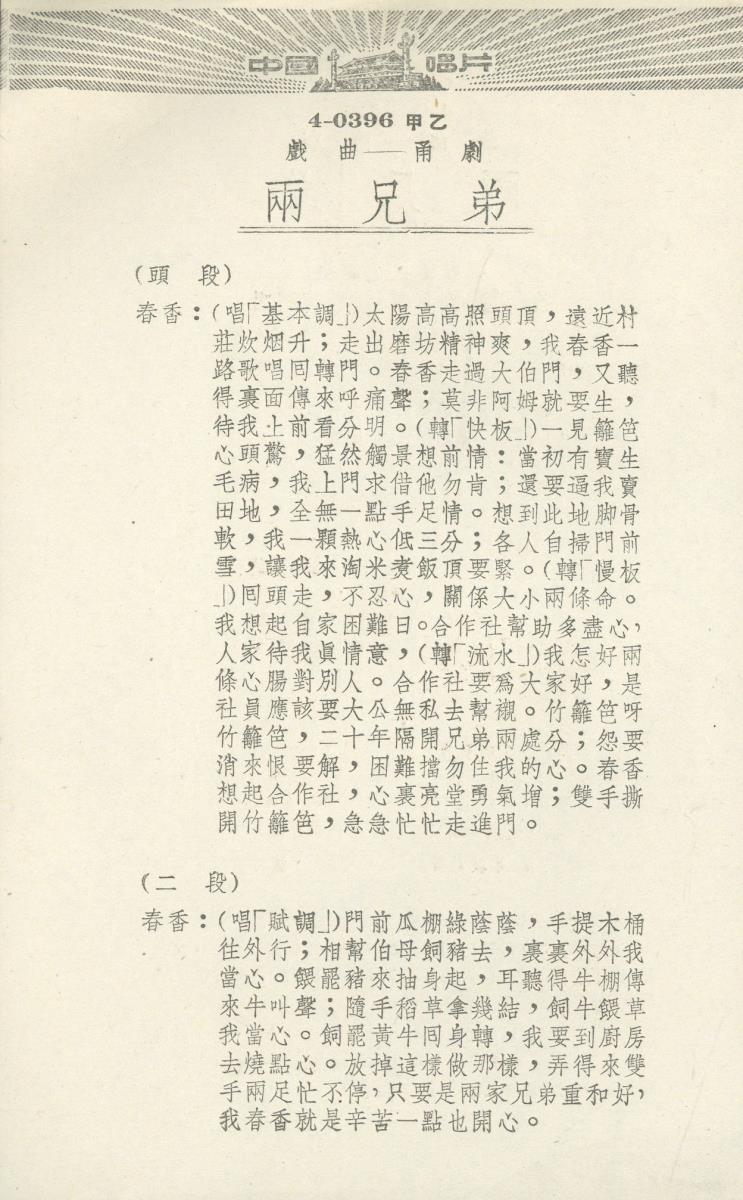 中國唱片
4-0396 甲乙
戲曲——甬劇
兩兄弟
(頭段)
春香：(唱「基本調」)太陽高高照頭頂，遠近村
莊炊烟升；走出磨坊精神爽，我春香一
路歌唱囘轉門。春香走過大伯門，又聽
得裏面傳來呼痛聲；莫非阿姆就要生，
待我上前看分明。(轉「快板」)一見籬笆
心頭驚，猛然觸景想前情：當初有寶生
毛病，我上門求借他勿肯；還要逼我賣
田地，全無一點手足情。想到此地脚骨
軟，我一顆熱心低三分；各人自掃門前
雪，讓我來淘米煑飯頂要緊。(轉「慢板
」)囘頭走，不忍心，關係大小兩條命。
我想起自家困難日。合作社幫助多盡心，
人家待我眞情意，(轉「流水」)我怎好兩
條心腸對別人。合作社要爲大家好，是
社員應該要大公無私去幫襯。竹籬笆呀
竹籬笆，二十年隔開兄弟兩處分；怨要
消來恨要解，困難擋勿住我的心。春香
想起合作社，心裏亮堂勇氣增；雙手撕
開竹籬笆，急急忙忙走進門。
(二段)
春香：(唱「賦調」)門前瓜棚綠蔭蔭，手提木桶
往外行；相幫伯母飼豬去，裏裏外外我
當心。餵罷豬來抽身起，耳聽得牛棚傳
來牛叫聲；隨手稻草拿幾結，飼牛餵草
我當心。飼罷黃牛囘身轉，我要到厨房
去燒點心。放掉這樣做那樣，弄得來雙
手兩足忙不停，只要是兩家兄弟重和好，
我春香就是辛苦一點也開心。